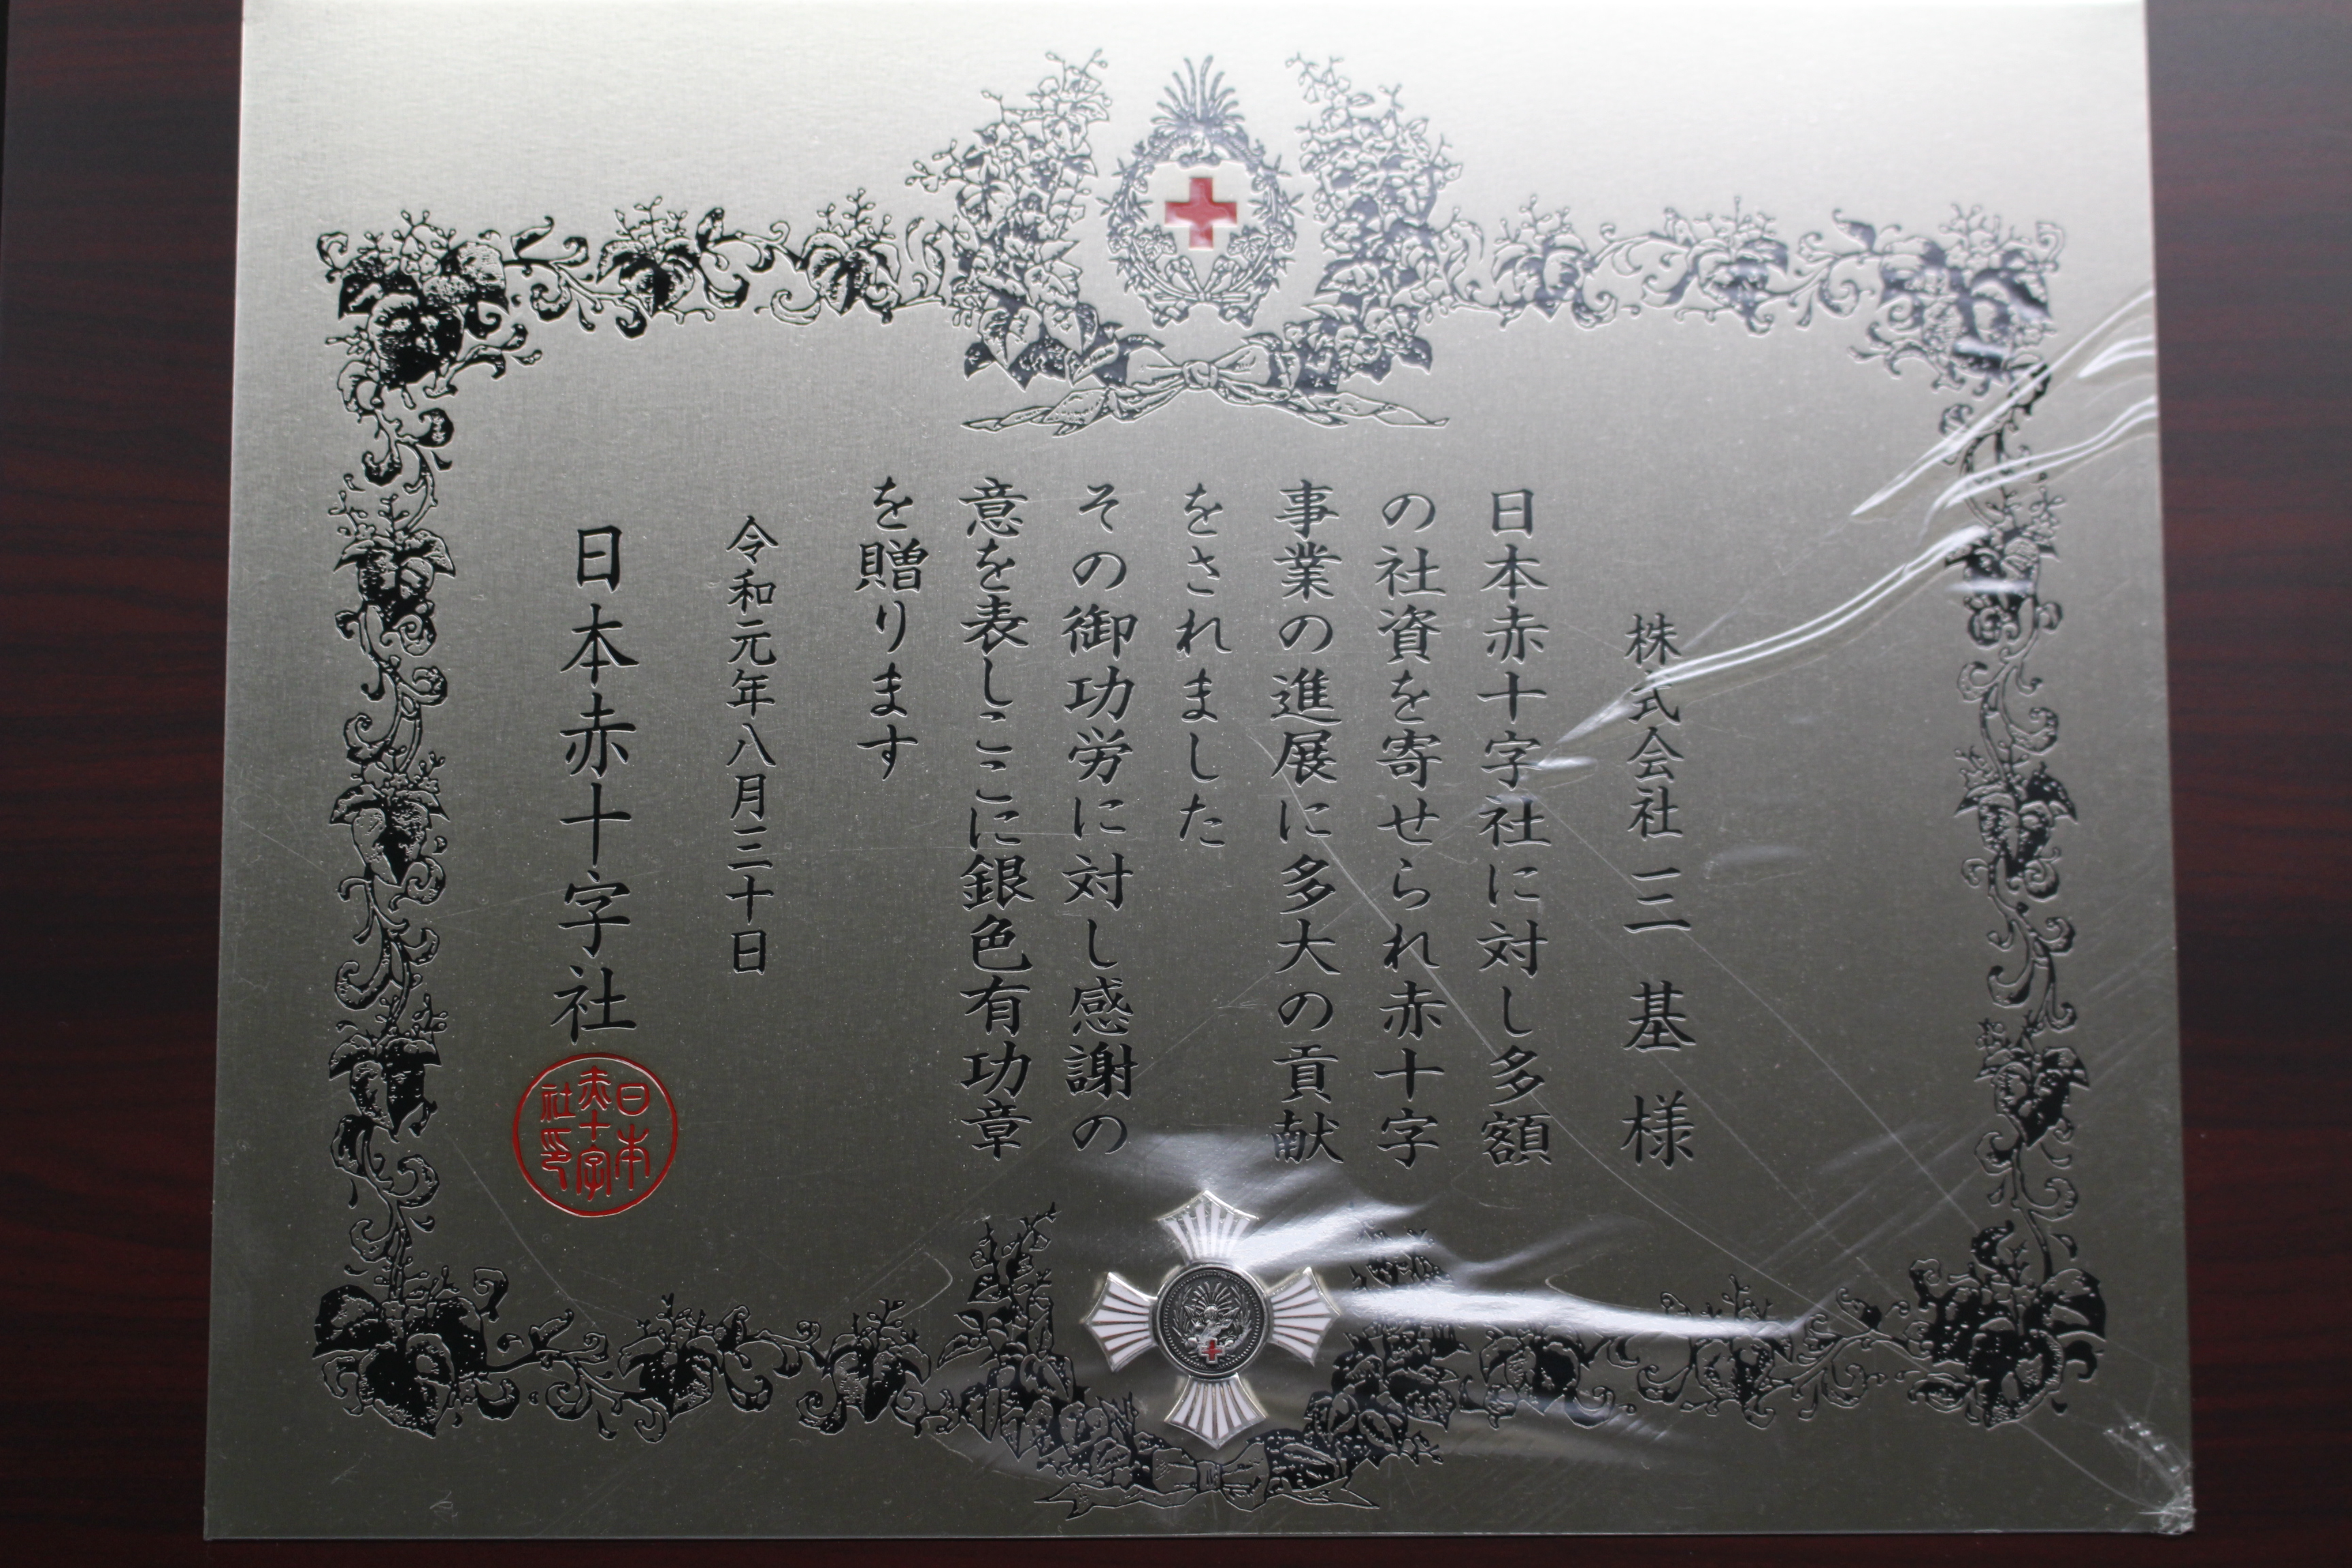 株式会社 三基様
日本赤十字社に対し多額
の社資を寄せられ赤十字
事業の進展に多大の貢献
をされました
その御功労に対し感謝の
意を表しここに銀色有功章
を贈ります
令和元年八月三十日
日本赤十字社
日本
赤十字
社印